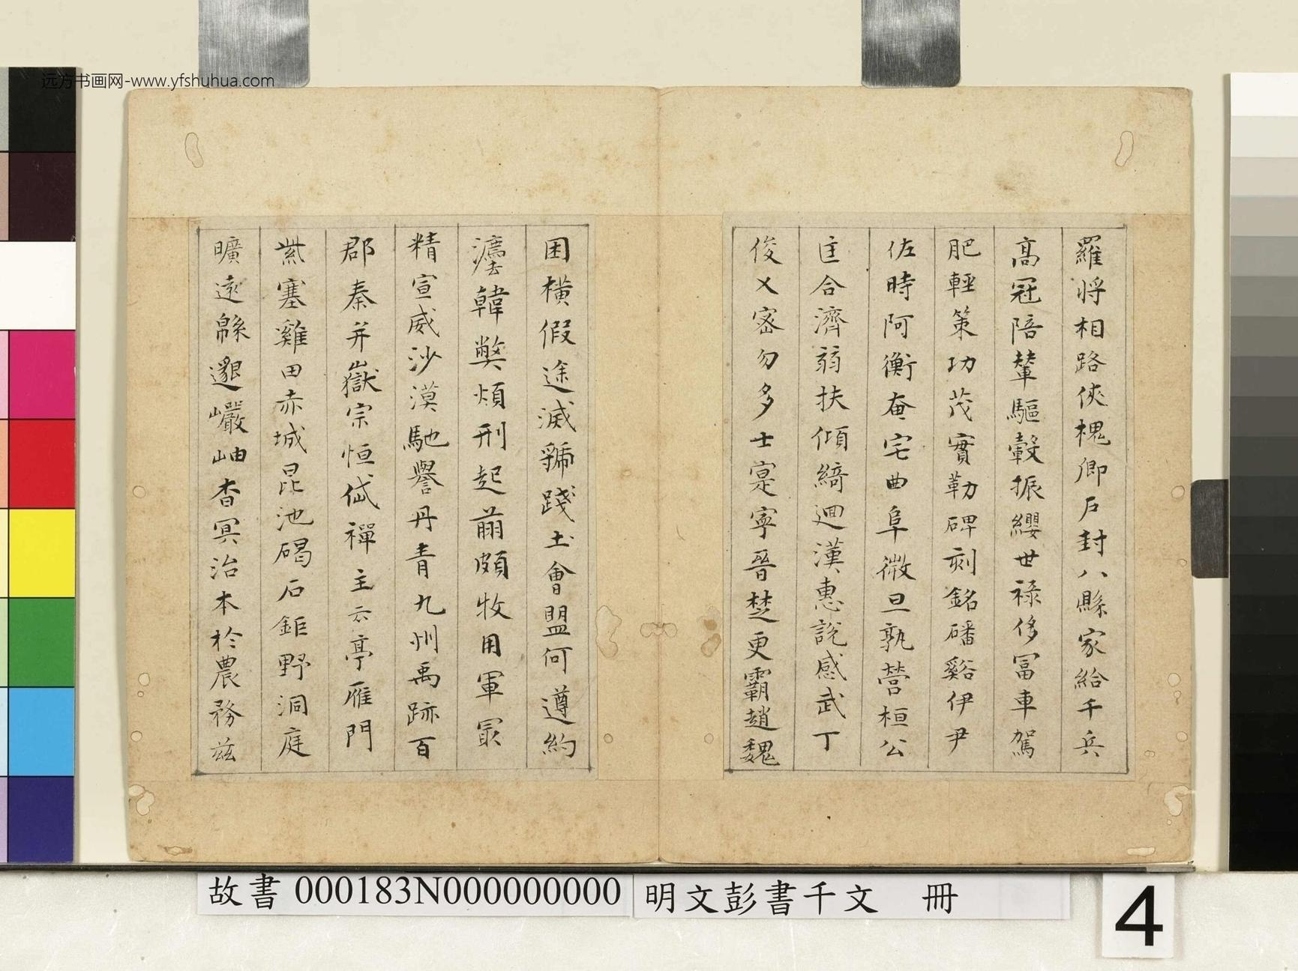 远方书画网-www.yfshuhua.com
羅將相路俠槐卿戶封八縣家給千兵
高冠陪輦驅轂振纓世祿侈富車駕
肥輕策功茂實勒碑刻銘磻谿伊尹
佐時阿衡奄宅曲阜微旦孰營桓公
匡合濟弱扶傾綺迴漢惠說感武丁
俊乂密勿多士寔寧晉楚更霸趙魏
困橫假途滅虢踐土會盟何遵約
灋韓弊煩刑起翦頗牧用軍冣
精宣威沙漠馳譽丹青九州禹跡百
郡秦并嶽宗恒岱禪主云亭雁門
紫塞雞田赤城昆池碣石鉅野洞庭
曠遠緜邈巖岫杳冥治本於農務茲
故書 000183N000000000 明文彭書千文 冊
4